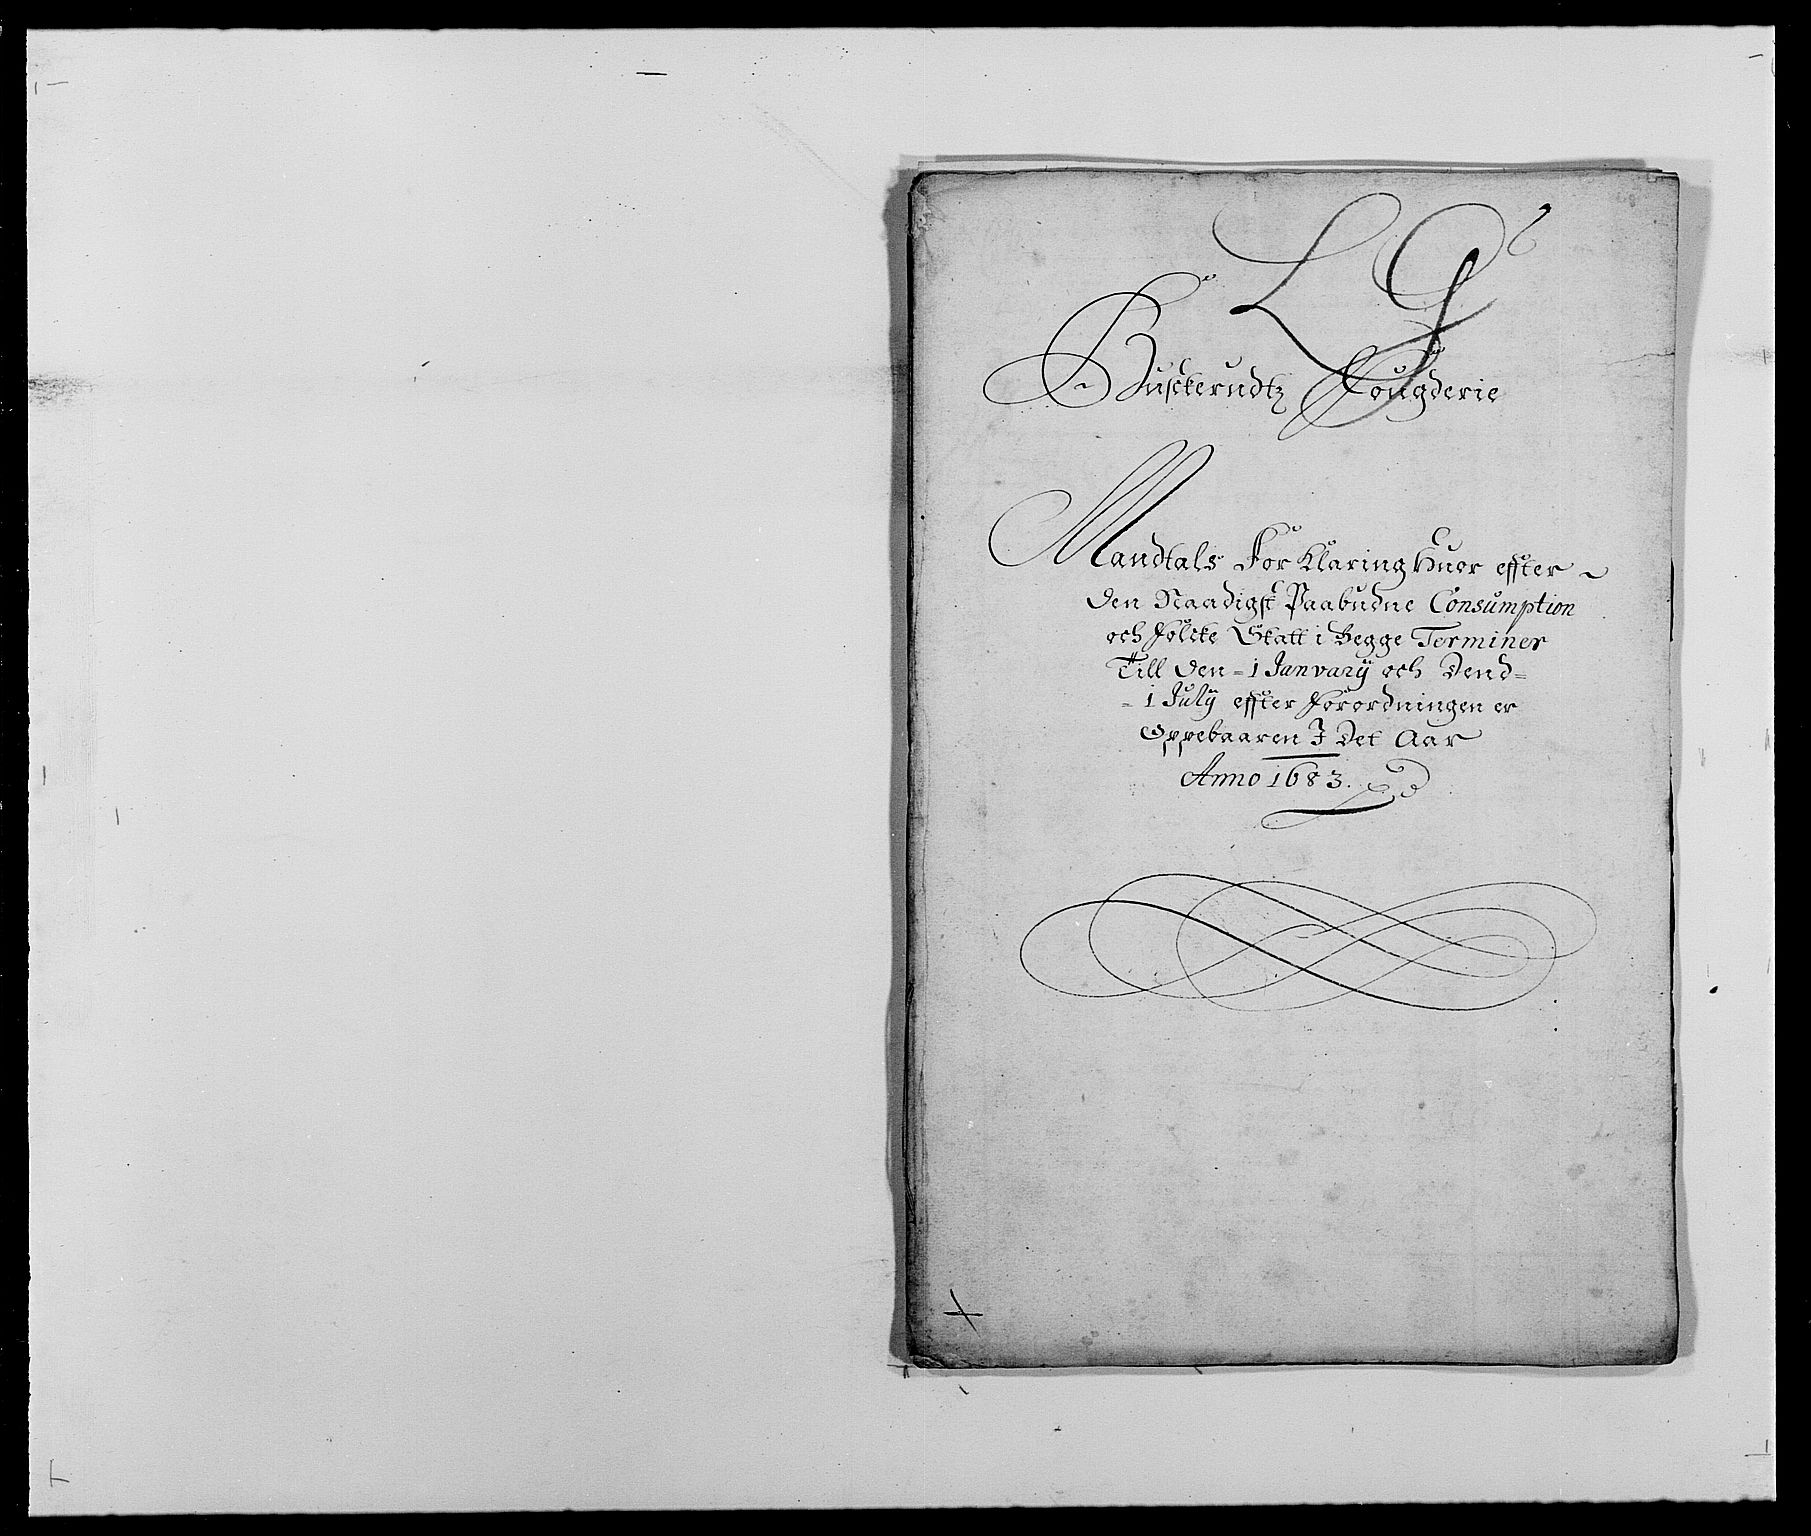 L G
Buskerudtz Fougderie
Mandtals Forklaring Huor effter
den Naadigst Paabudne Consumption
och Folcke Skatt i Begge Terminer
Till den 1 January och Dend
1 July effter Forordningen er
Oppebaaren I Det Aar
Anno 1683.